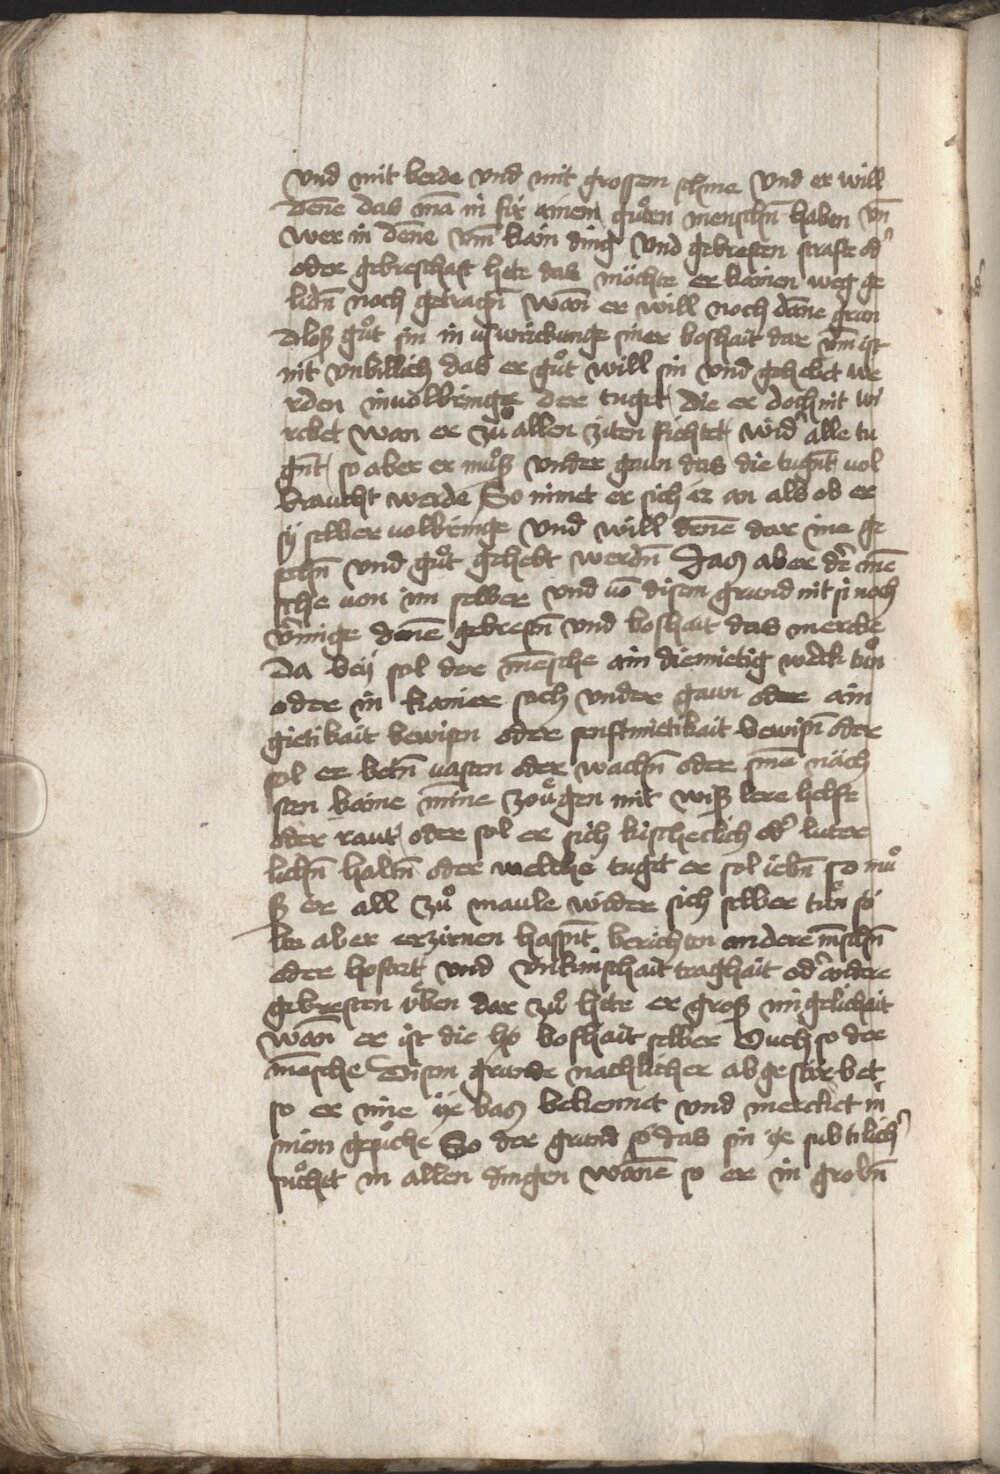 vnd mit berde vnd mit grossem schine vnd er will
dēne das mā in für ainem gůten menschn̄ haben vn̄
wer in dēne vm̄ kain ding vnd gebresten strafte od'
oder gebreschaft hete das möchte er kainen weg ge
lidn̄ noch getragn̄ wān er will noch dāne gran
dloß gůt sin in uswirckunge siner boshait dar vm̄ ist
nit vnbillich das er gůt will sin vnd gehebet we
rden in uolbringe der tuget die er doch nit wi
rcket wan er zů allen ziten fichtet wid' alle tu
gn̄t so aber er můß vnder gaun das die tugn̄t uol
braucht werde So nimet er sich ir an als ob er
sÿ selber uolbringe vnd will dēne dar ine ge
sehn̄ vnd gůt gehebt werdn̄ Das aber d'e mē
sche uon im selber vnd uō disem grund nit si noch
dēne gebrestn̄ vnd boshait das mercke
Da beÿ sol der mēsche ain diemietig werck tůn
oder in kainer sach vnder gaun oder ain
gietikait bewisen oder senftmietikait bewisn̄ oder
sol er betn̄ uasten oder wachn̄ oder sinē näch
sten kaine mīne zoügen mit wiß lere helfe
oder raut oder sol er sich kischeclich od' luter
lichn̄ haltn̄ oder welche tuget er sol iebn̄ so mů
ß er all zů maule wider sich selber tůn sö
lte aber erzirnen hassn̄t berichten andere mēschn̄
oder hofart vnd vnkinschait traghait od' andere
gebresten ůben dar zů hete er groß mi gelichait
wān er ist die ho boshait selber Ouch so der
mēsche Disem grunde nachlicher abgestirbet
so er ime ÿe bas bekennet vnd mercket in
sinem gesůche So der grund so das sin ie subtilich'
sůchet in allen dingen wāne so er in grobn̄